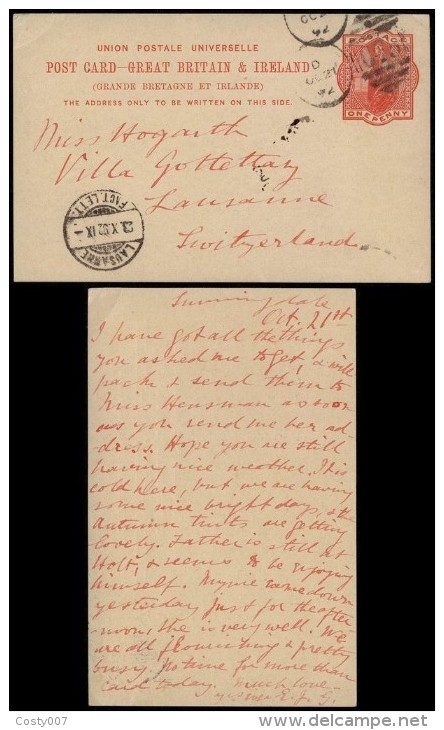 UNION POSTALE UNIVERSELLE
POST CARD—GREAT BRITAIN & IRELAND
(GRANDE BRETAGNE ET IRLANDE)
THE ADDRESS ONLY TO BE WRITTEN ON THIS SIDE.
POSTAGE
ONE PENNY
OC 21
92
Miss Hogarth
Villa
Lausanne
Switzerland
LAUSANNE
23.X.92.IX
FACT. LETT.
Sunningdale
Oct. 21st
I have got all the things
you asked me to get, & will
pack & send them to
Miss Hensman as soon
as you send me her ad-
dress. Hope you are still
having nice weather. It is
cold here, but we are having
some nice bright days, & the
Autumn tints are getting
lovely. Father is still at
Holt, & seems to be enjoying
himself. came down
yesterday just for the after
noon, she is very well. We
are all flourishing & pretty
busy. No time for more than
card today. Much love
E. J. G.
Costy007
www.delcampe.net